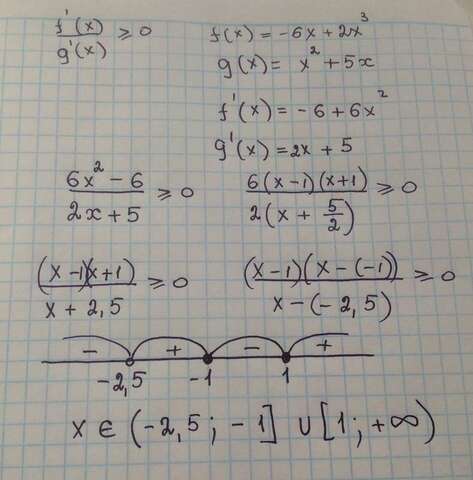 f'(x)/g'(x) ≥ 0    f(x) = -6x + 2x³
g(x) = x² + 5x
f'(x) = -6 + 6x²
g'(x) = 2x + 5
(6x² - 6)/(2x + 5) ≥ 0    6(x-1)(x+1)/2(x + 5/2) ≥ 0
(x-1)(x+1)/x + 2,5 ≥ 0    (x-1)(x-(-1))/x-(-2,5) ≥ 0
- + - +
-2,5 -1 1
x ∈ (-2,5; -1] ∪ [1; +∞)